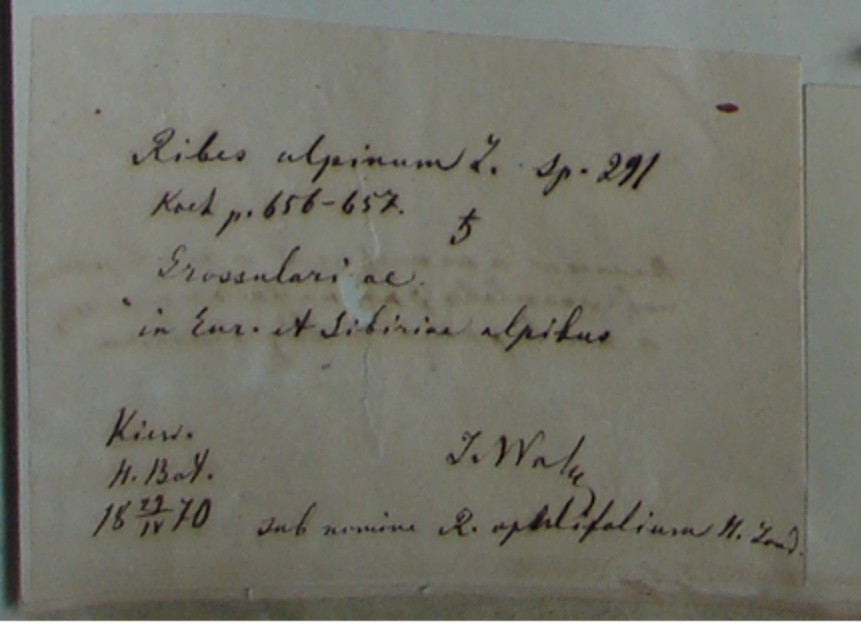 Ribes alpinum L. sp. 291
Koch p. 656-657.
♄
Grossulariae.
in Eur. et Sibiriae alpibus
Kiew.
H. Bot.
18 29/IV 70
sub nomine R. opulifolium H. Lond.